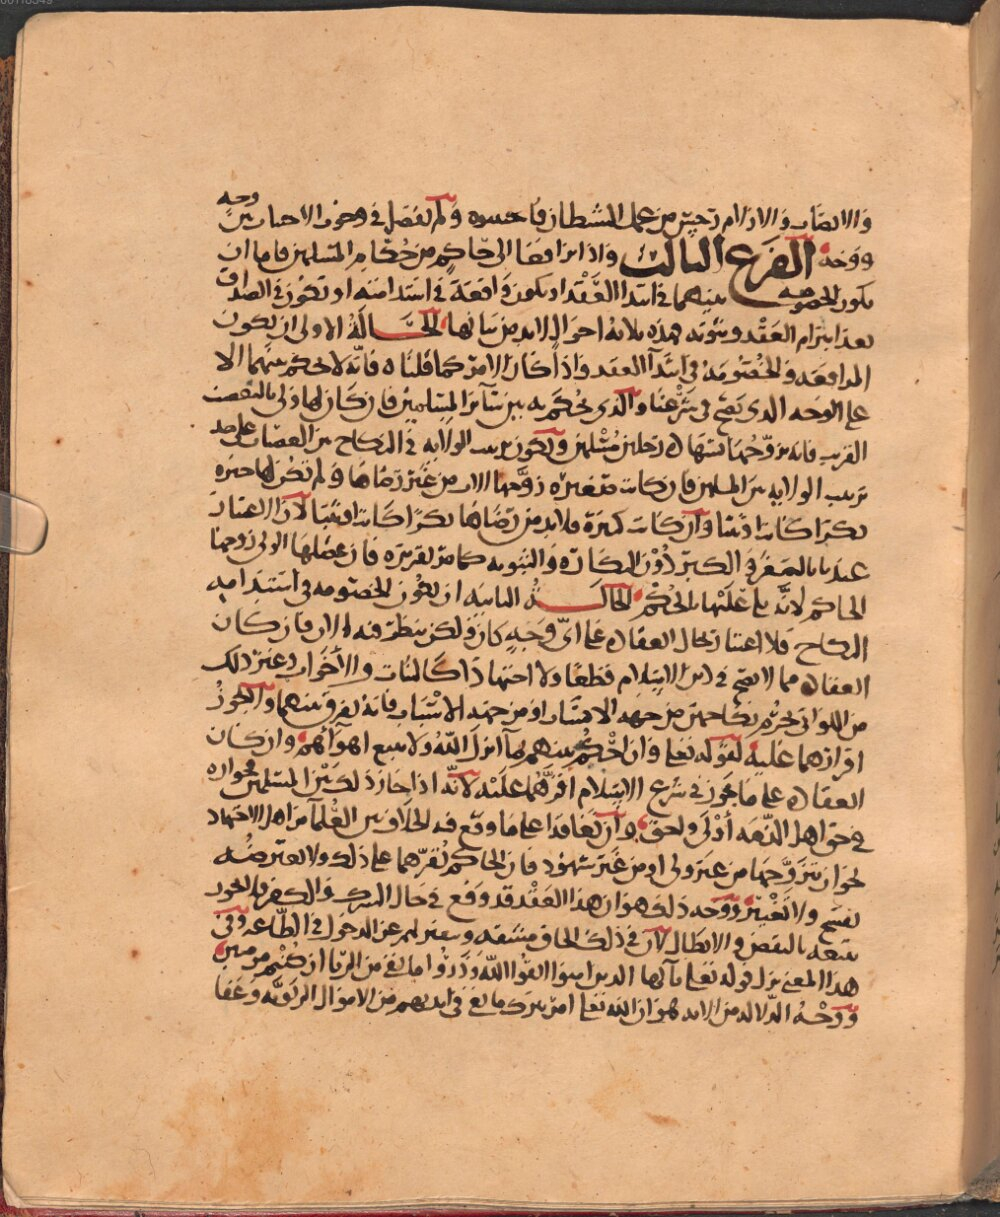 والانصاب والازلام رجس من عمل الشيطان فاجتنبوه ولم يفصل في وجوب الاجتناب بين وجه
ووجه الفرع الثالث واذا ترافعا الى حاكم من حكام المسلمين فاما ان
يكون الخصومه بينهما في ابتدا العقد او يكون واقعة في استدامته او تكون في الصداق
بعد ابترام العقد وثبوته فهذه ثلاثة احوال لابد من بيانها الحالة الاولى ان يكون
المرافعه والخصومه في ابتدآ العقد واذا كان الامر كما قلناه فانه لا يحكم بينهما الا
على الوجه الذي يصح في شرعنا والذي يحكم به بين سآئر المسلمين فان كان لها ولي بالتعصيب
القريب فانه يزوجها بشهادة رجلين مسلمين ويكون ترتيب الولايه في النكاح من العصبات على حد
ترتيب الولايه بين المسلمين فان كانت صغيره زوجها الاب من غير رضاها ولم تكن لها خيره
بكرا كانت او ثيبا وان كانت كبيرة فلابد من رضاها بكرا كانت او ثيبا لان الاعتبار
عندنا بالصغر والكبر دون البكارة والثيوبه كما مر تقريره فان عضلها الولي زوجها
الحاكم لانه يلي عليها بالحكم الحالة الثانيه ان تكون الخصومه في استدامه
النكاح فلا اعتبار بحال العقد على اي وجه كان ولكن ينظر فيه الان فان كان
العقد مما لا يصح في دين الاسلام قطعا ولا اجتهادا كالبنات والاخوات وغير ذلك
من اللواتي يحرم نكاحهن من جهه الانساب او من جهه الاسباب فانه يفرق بينهما ولا يجوز
اقرارهما عليه لقوله تعلى وان احكم بينهم بمآ انزل الله ولا تتبع اهوآهم وان كان
العقد على ما يجوز في شرع الاسلام اقرهما عليه لانه اذا جاز ذلك بين المسلمين فجوازه
في حق اهل الذمه أولى واحق وان تعاقدا على ما وقع فيه الخلاف بين العلمآ من اهل الاجتهاد
نحو ان يتزوجها من غير ولي او من غير شهود فان الحاكم يقرهما على ذلك ولا يعترضه
بفسخ ولا تغيير ووجه ذلك هو ان هذا العقد قد وقع في حال الشرك والكفر فلا يجوز
تتبعه بالنقض والابطال لان في ذلك الحاق مشقه وتنفير لهم عن الدخول في الطاعه وفي
هذا المعنى نزل قوله تعلى يآ ايها الذين امنوا اتقوا الله وذروا ما بقي من الربا ان كنتم مومنين
ووجه الدلالة من الايه هو ان الله تعلى امر بترك ما بقي في ايديهم من الاموال الربويه وعفا